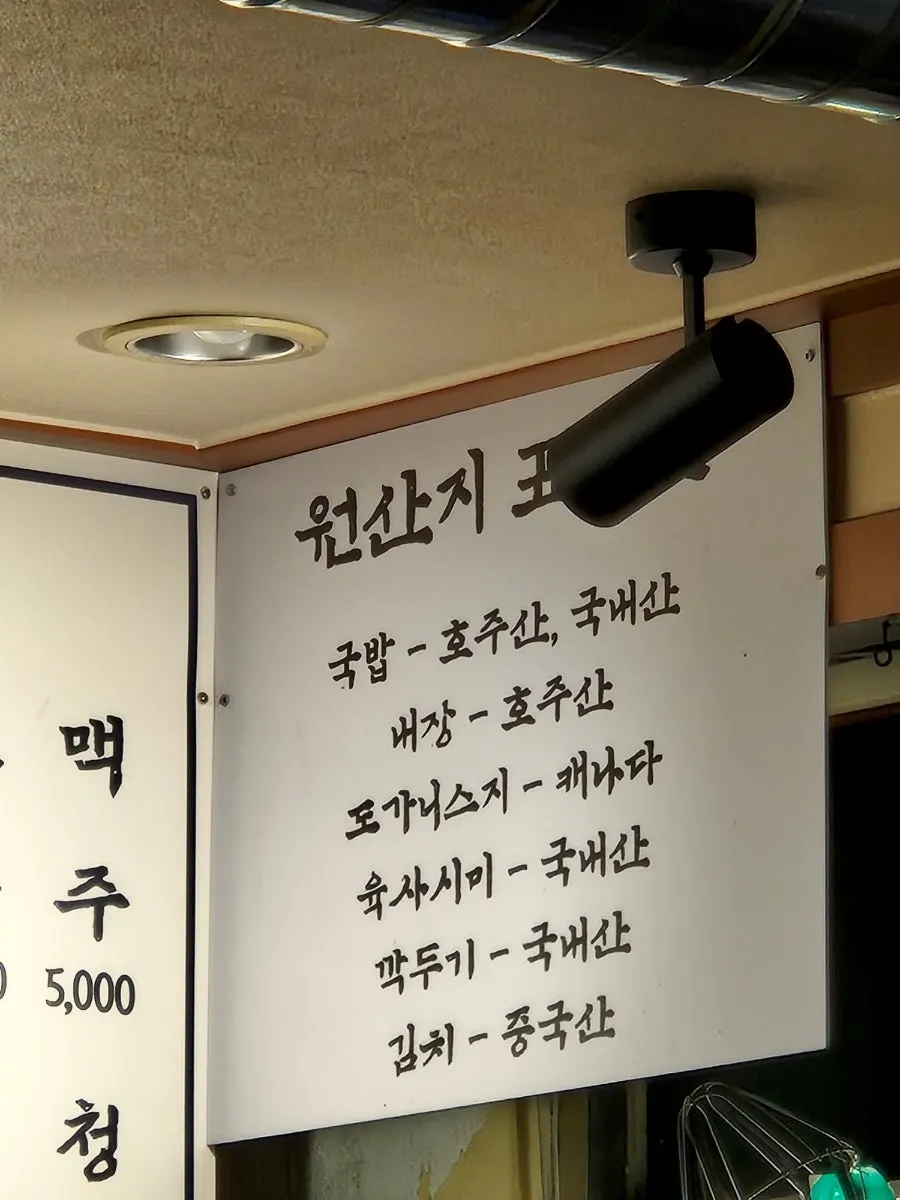 원산지
국밥 - 호주산, 국내산
내장 - 호주산
도가니스지 - 캐나다
육사시미 - 국내산
깍두기 - 국내산
김치 - 중국산
맥주
5,000
청